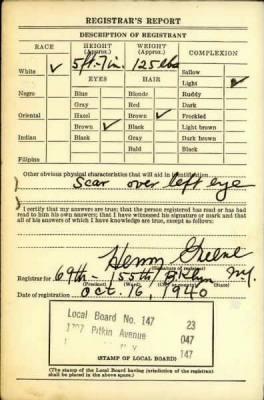 REGISTRAR'S REPORT
DESCRIPTION OF REGISTRANT
RACE HEIGHT (Approx.) WEIGHT (Approx.) COMPLEXION
5 ft. 7 in. 125 lbs
White ✓ Sallow
EYES HAIR Light ✓
Negro Blue Blonde Ruddy
Gray Red Dark
Oriental Hazel Brown ✓ Freckled
Brown ✓ Black Light brown
Indian Black Gray Dark brown
Bald Black
Filipino
Other obvious physical characteristics that will aid in identification
Scar over left eye
I certify that my answers are true; that the person registered has read or has had
read to him his own answers; that I have witnessed his signature or mark and that
all of his answers of which I have knowledge are true, except as follows:
Henry Greene
(Signature of registrar)
Registrar for 69th - 155th, Bklyn N.Y.
(Precinct) (Ward)
Date of registration Oct. 16, 1940
Local Board No. 147 23
1707 Pitkin Avenue 047
147
(STAMP OF LOCAL BOARD)
(The stamp of the Local Board having jurisdiction of the registrant
shall be placed in the above space.)